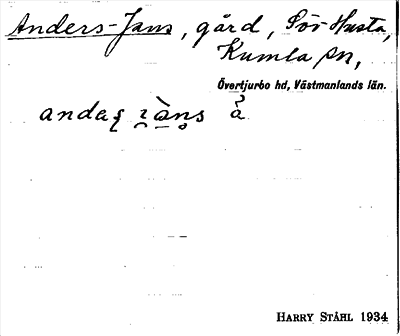 Anders-Jans, gård, Sör Husta,
Kumla sn,
Övertjurbo hd, Västmanlands län.
HARRY STÅHL 1934